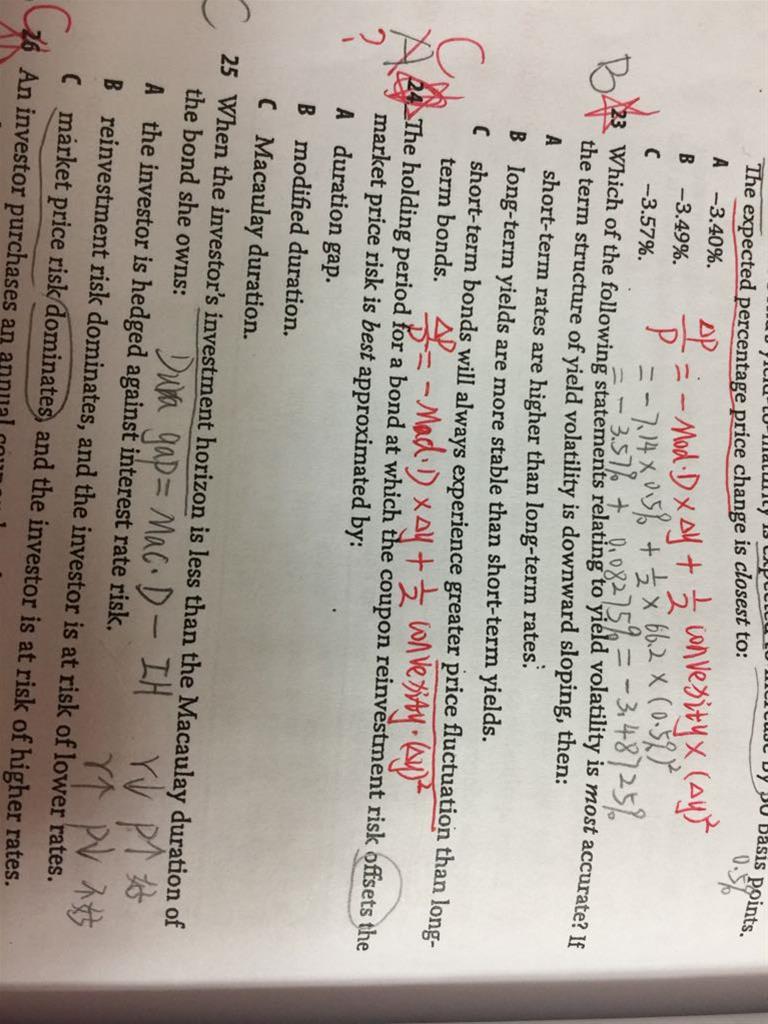 yield-to-maturity is expected to increase by 50 basis points.
0.5%
The expected percentage price change is closest to:
A −3.40%.
B −3.49%.
C −3.57%.
ΔP/P = − Mod.D × Δy + 1/2 convexity × (Δy)²
= − 7.14 × 0.5% + 1/2 × 66.2 × (0.5%)²
= − 3.57% + 0.08275% = − 3.48725%
B
23 Which of the following statements relating to yield volatility is most accurate? If
the term structure of yield volatility is downward sloping, then:
A short-term rates are higher than long-term rates.
B long-term yields are more stable than short-term yields.
C short-term bonds will always experience greater price fluctuation than long-
term bonds.
ΔP/P = − Mod.D × Δy + 1/2 convexity · (Δy)²
C
A
?
24 The holding period for a bond at which the coupon reinvestment risk offsets the
market price risk is best approximated by:
A duration gap.
B modified duration.
C Macaulay duration.
C
25 When the investor's investment horizon is less than the Macaulay duration of
the bond she owns:
Dura gap = Mac.D − IH
r↓ p↑ 好
r↑ p↓ 不好
A the investor is hedged against interest rate risk.
B reinvestment risk dominates, and the investor is at risk of lower rates.
C market price risk dominates, and the investor is at risk of higher rates.
C
26 An investor purchases an annual coupon